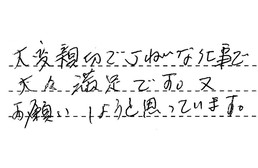 大変親切で丁ねいな仕事で
大合満足です。又
お願いしようと思っています。